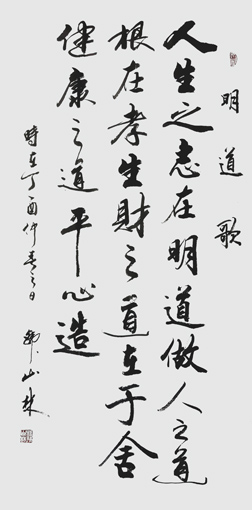 明道歌
人生之志在明道做人之道
根在孝生財之道在于舍
健康之道平心造
時在丁酉仲春之日
山林